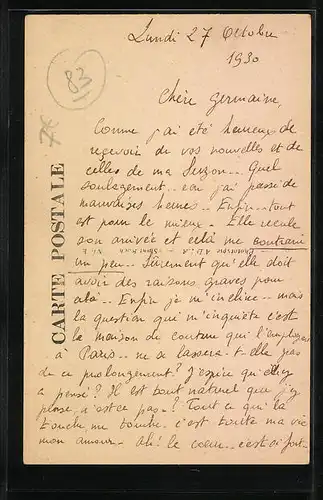 Lundi 27 Octobre
1930
83
7€
CARTE POSTALE
Chère Germaine,
Comme j'ai été heureux de
recevoir de vos nouvelles et de
celles de ma Suzon.. Quel
soulagement.. car j'ai passé de
mauvaises heures.. Enfin.. tout
est pour le mieux. Elle recule
son arrivée et celà me contrarie
un peu.. Sûrement qu'elle doit
avoir des raisons graves pour
celà.. Enfin je m'incline.. mais
la question qui m'inquiète c'est
la maison de couture qui l'emploie
à Paris.. ne se lassera-t-elle pas
de ce prolongement? J'espère qu'elle y
a pensé? Il est tout naturel que j'y
pense, n'est ce pas? Tout ce qui la
touche, me touche.. c'est toute ma vie
mon amour.. Ah! le cœur.. c'est si fort..